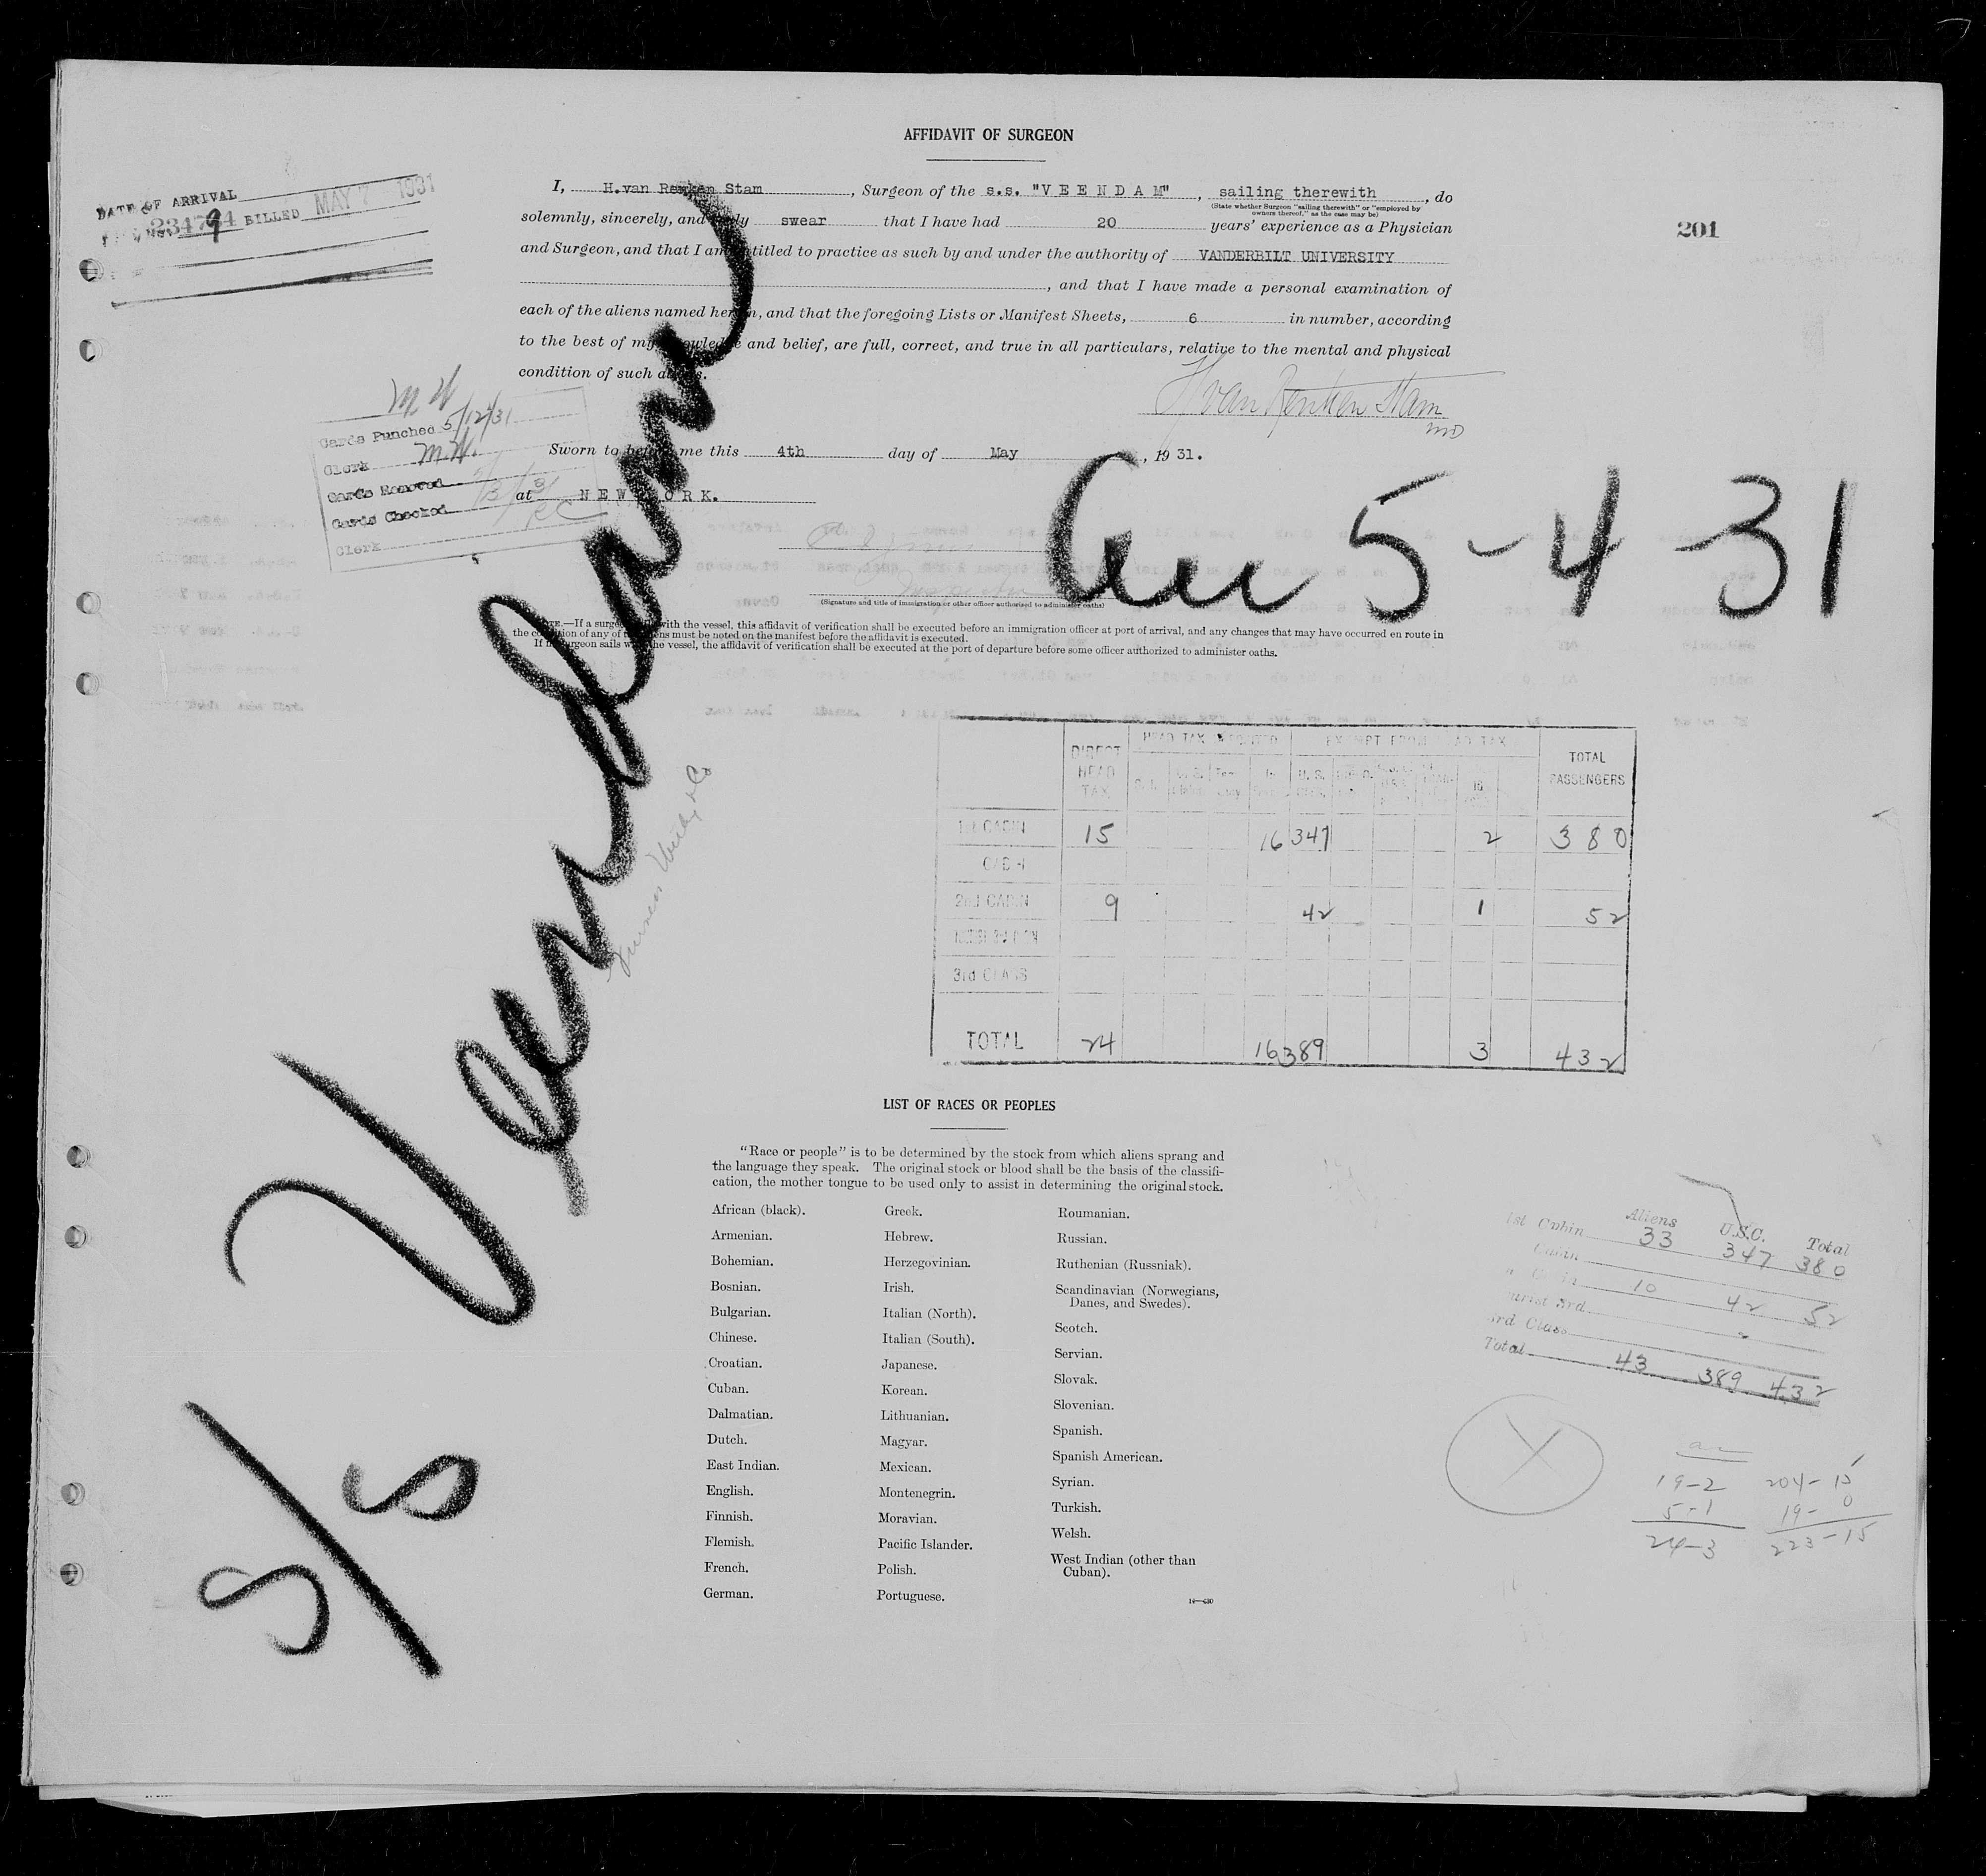 AFFIDAVIT OF SURGEON
I, H.van Renken Stam, Surgeon of the s.s. "V E E N D A M", sailing therewith, do
(State whether Surgeon "sailing therewith" or "employed by owners thereof," as the case may be)
solemnly, sincerely, and truly swear that I have had 20 years' experience as a Physician
and Surgeon, and that I am entitled to practice as such by and under the authority of VANDERBILT UNIVERSITY
, and that I have made a personal examination of
each of the aliens named herein, and that the foregoing Lists or Manifest Sheets, 6 in number, according
to the best of my knowledge and belief, are full, correct, and true in all particulars, relative to the mental and physical
condition of such aliens.
H van Renken Stam
MD
Sworn to before me this 4th day of May, 1931.
at N E W Y O R K.
(Signature and title of immigration or other officer authorized to administer oaths)
NOTE.—If a surgeon sails with the vessel, this affidavit of verification shall be executed before an immigration officer at port of arrival, and any changes that may have occurred en route in
the condition of any of the aliens must be noted on the manifest before the affidavit is executed.
If no surgeon sails with the vessel, the affidavit of verification shall be executed at the port of departure before some officer authorized to administer oaths.
DATE OF ARRIVAL
BILLED MAY 7 1931
201
M W
Cards Punched 5/12/31
Clerk M.W.
Cards Removed
Cards Checked
Clerk
5-4-31
S/S Veendam
DIRECT HEAD TAX
HEAD TAX ACCOUNTED
EXEMPT FROM HEAD TAX
TOTAL PASSENGERS
1st CABIN 15 16 347 2 380
CABIN
2nd CABIN 9 42 1 52
3rd CLASS
TOTAL 24 16 389 3 432
LIST OF RACES OR PEOPLES
"Race or people" is to be determined by the stock from which aliens sprang and
the language they speak. The original stock or blood shall be the basis of the classifi-
cation, the mother tongue to be used only to assist in determining the original stock.
African (black).
Armenian.
Bohemian.
Bosnian.
Bulgarian.
Chinese.
Croatian.
Cuban.
Dalmatian.
Dutch.
East Indian.
English.
Finnish.
Flemish.
French.
German.
Greek.
Hebrew.
Herzegovinian.
Irish.
Italian (North).
Italian (South).
Japanese.
Korean.
Lithuanian.
Magyar.
Mexican.
Montenegrin.
Moravian.
Pacific Islander.
Polish.
Portuguese.
Roumanian.
Russian.
Ruthenian (Russniak).
Scandinavian (Norwegians,
Danes, and Swedes).
Scotch.
Servian.
Slovak.
Slovenian.
Spanish.
Spanish American.
Syrian.
Turkish.
Welsh.
West Indian (other than
Cuban).
Aliens U.S.C. Total
1st Cabin 33 347 380
Cabin
10 42 52
3rd Class
Total 43 389 432
19-2 204-15
5-1 19-0
24-3 223-15